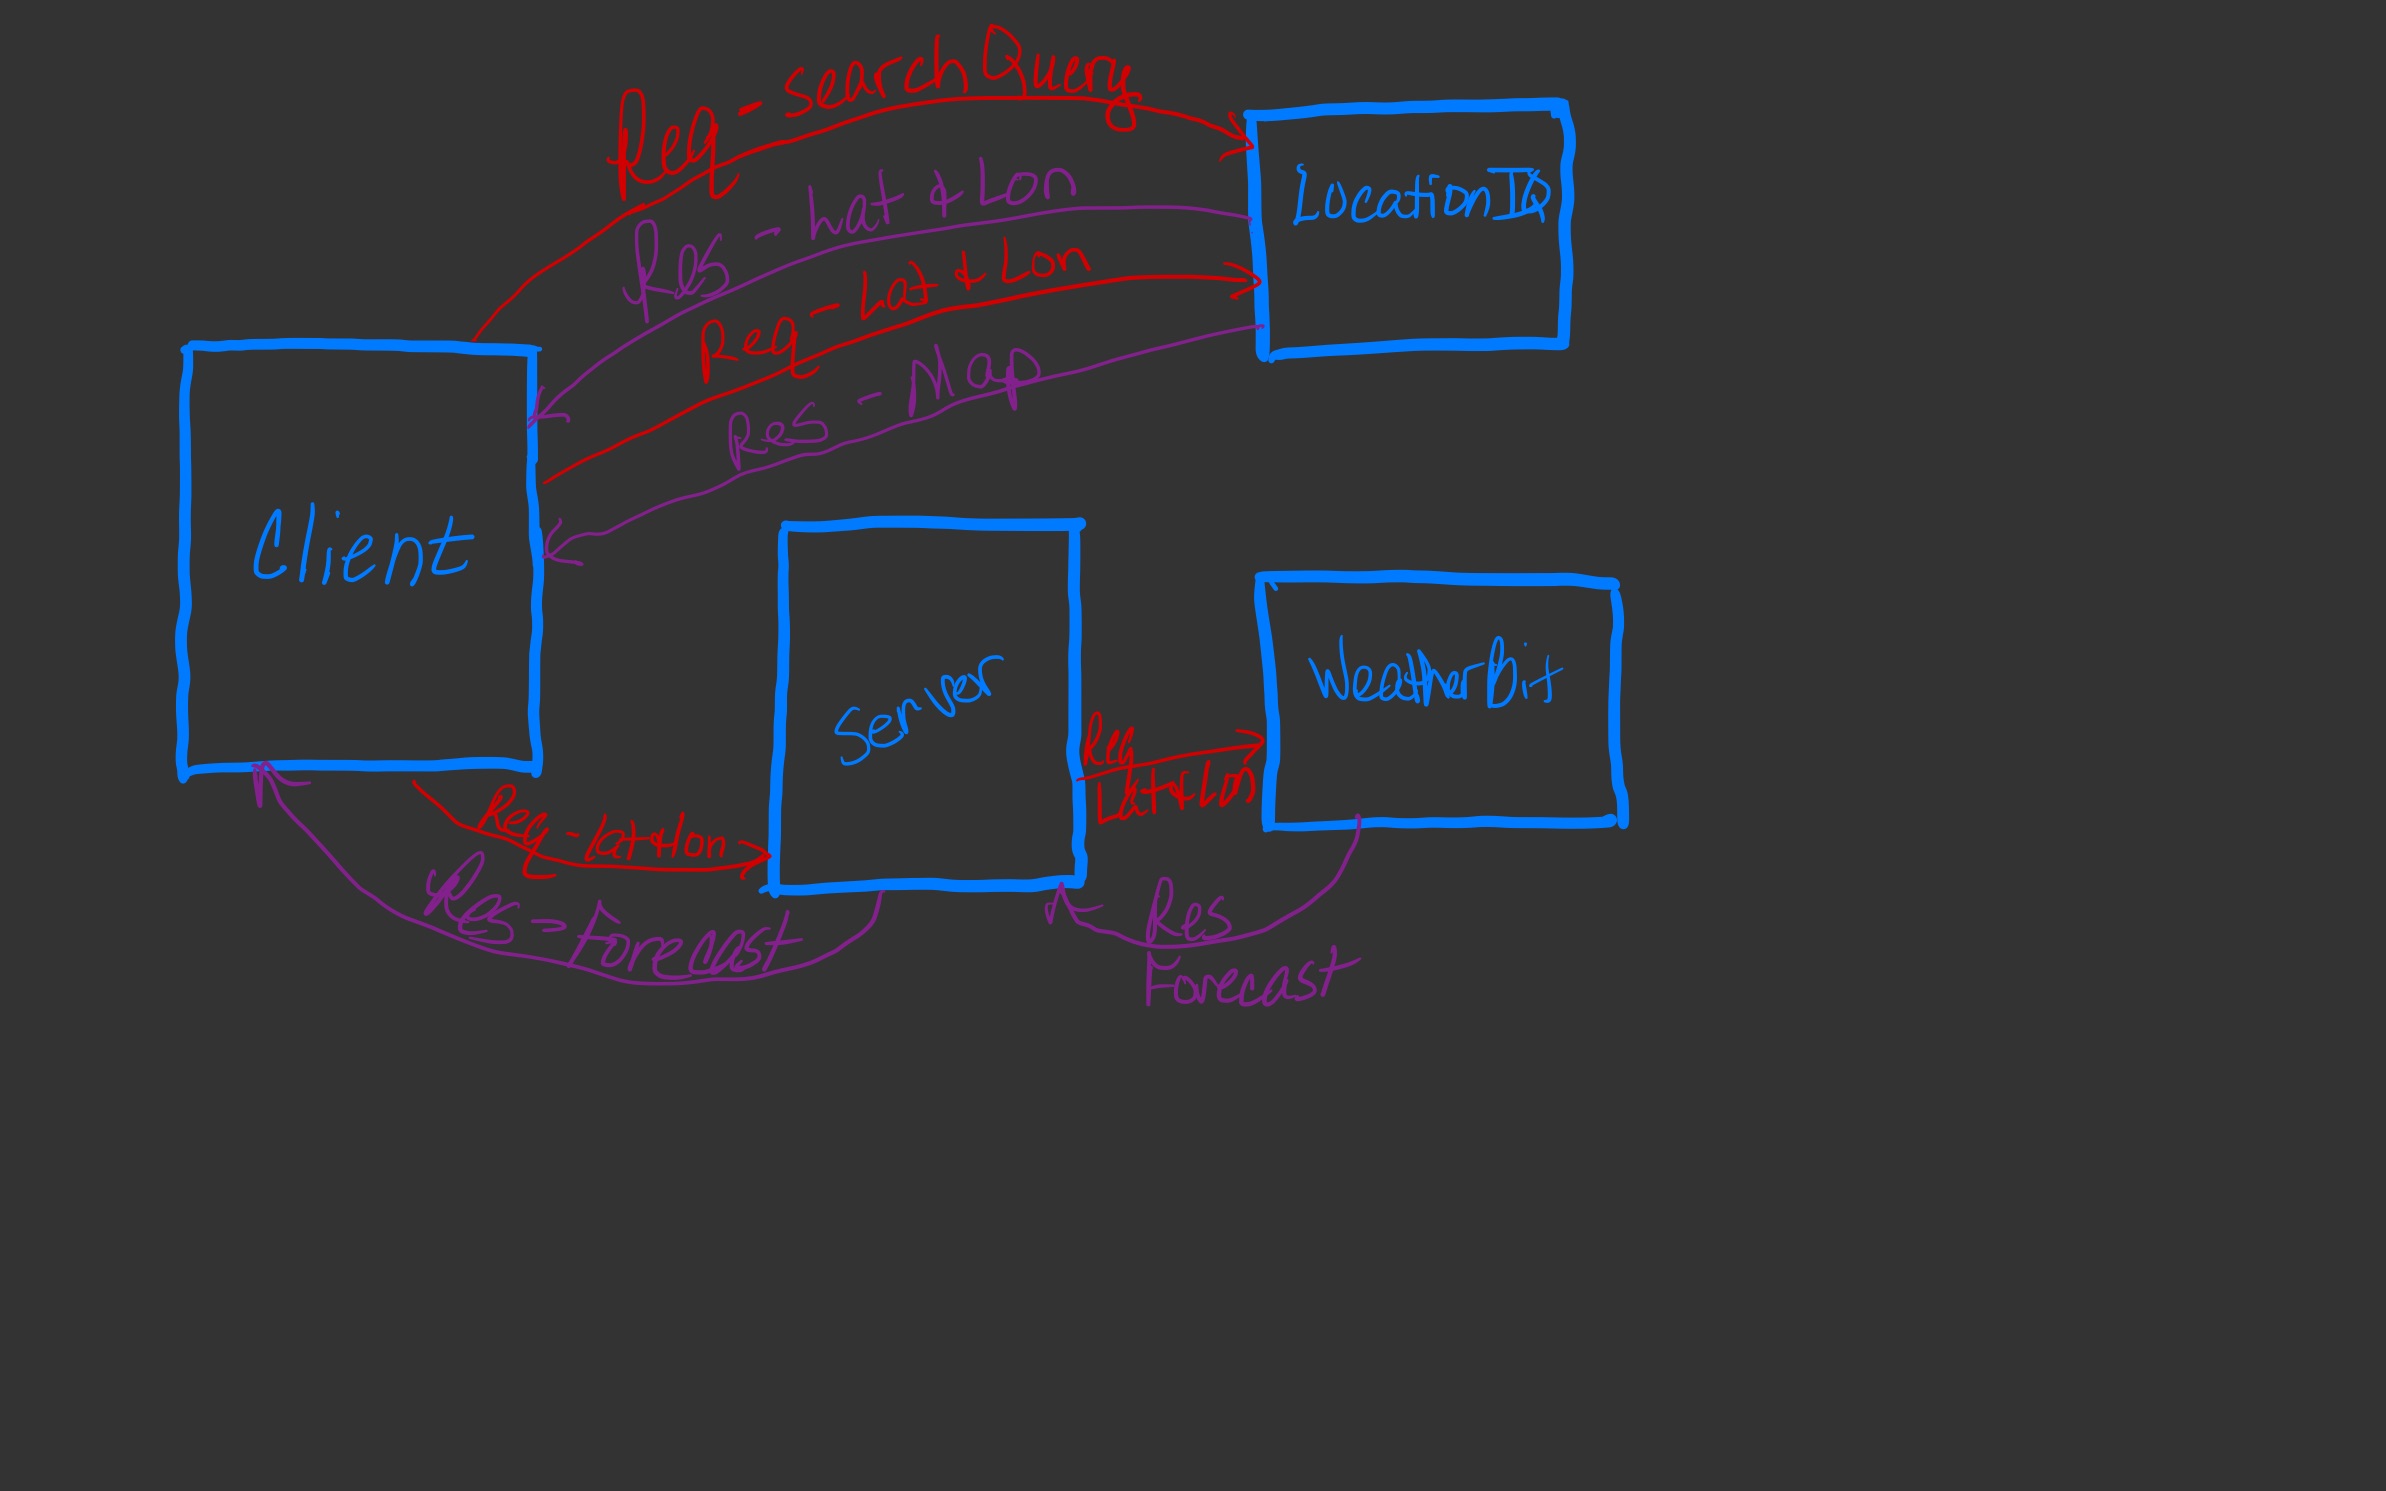 Req - searchQuery
LocationIQ
Res - Lat + Lon
Req - Lat + Lon
Res - Map
Client
Server
WeatherBit
Req
Lat + Lon
Req - lat + lon
Res - Forecast
Res
Forecast